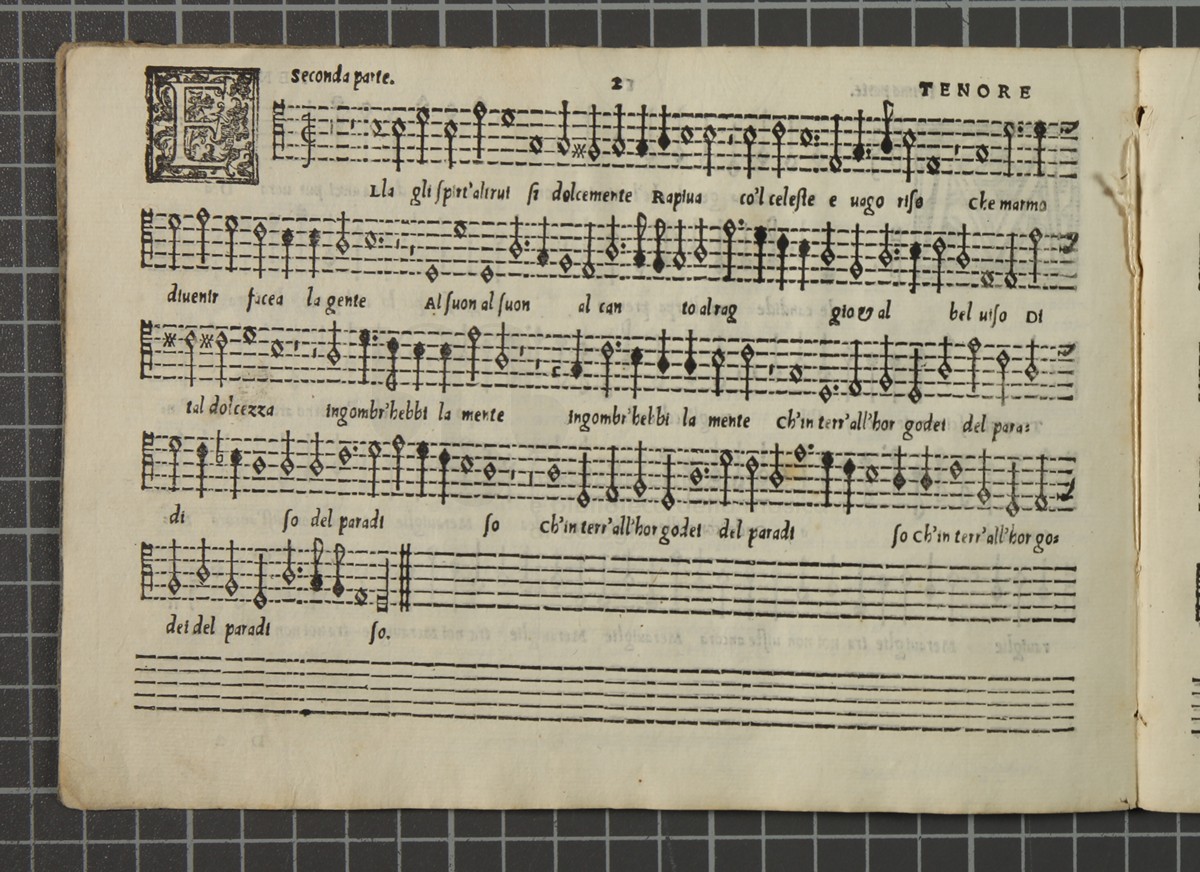 Seconda parte. 2 TENORE
ELla gli spirt'altrui si dolcemente Rapiua co'l celeste e uago riso che marmo
diuenir facea la gente Al suon al suon al can to al rag gio & al bel uiso Di
tal dolcezza ingombr'hebbi la mente ingombr'hebbi la mente ch'in terr'all'hor godei del para=
di so del paradi so ch'in terr'all'hor godei del paradi so ch'in terr'all'hor go=
dei del paradi so.